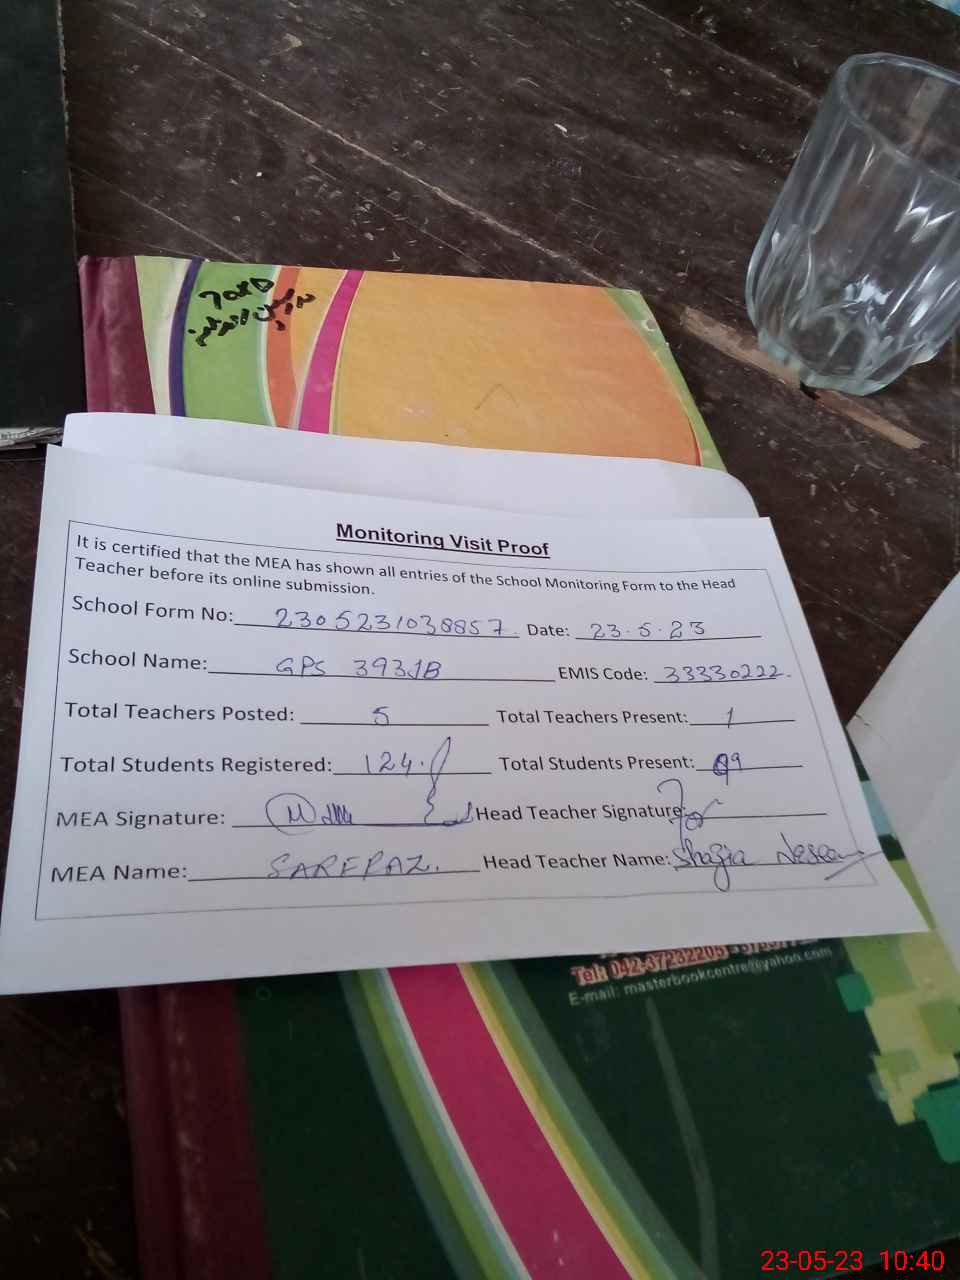 Monitoring Visit Proof
It is certified that the MEA has shown all entries of the School Monitoring Form to the Head
Teacher before its online submission.
School Form No: 2305231038857 Date: 23.5.23
School Name: GPS 393JB EMIS Code: 33330222.
Total Teachers Posted: 5 Total Teachers Present: 1
Total Students Registered: 124. Total Students Present: 99
MEA Signature: Head Teacher Signature:
MEA Name: SARFRAZ. Head Teacher Name: Shazia
Tel: 042-37232205
E-mail: masterbookcentre@yahoo.com
23-05-23 10:40